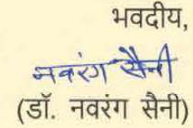 भवदीय,
नवरंग सैनी
(डॉ. नवरंग सैनी)